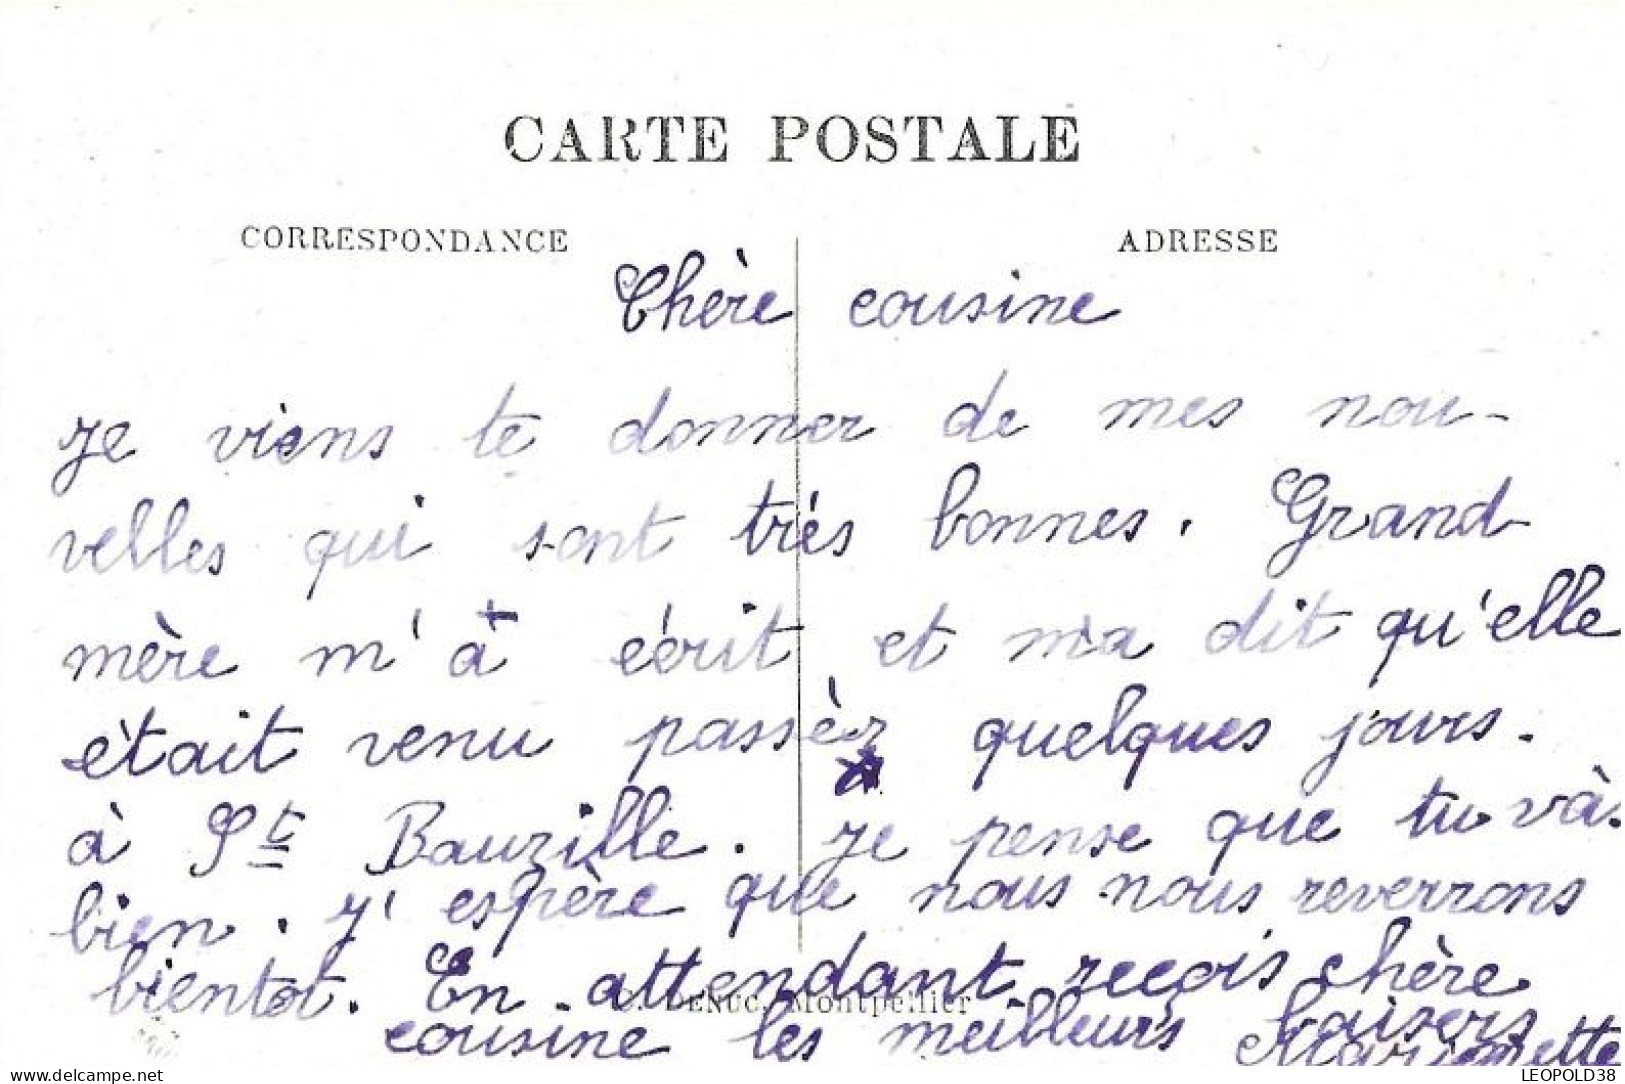 CARTE POSTALE
CORRESPONDANCE
ADRESSE
Chère cousine
Je viens te donner de mes nou-
velles qui sont très bonnes. Grand-
mère m'à écrit et m'a dit qu'elle
était venu passèr quelques jours.
à St Bauzille. Je pense que tu và.
bien. J'espère que nous nous reverrons
bientot. En attendant reçois chère
C. DENUC, Montpellier
cousine les meilleurs baisers
Mariomette
LEOPOLD38
delcampe.net